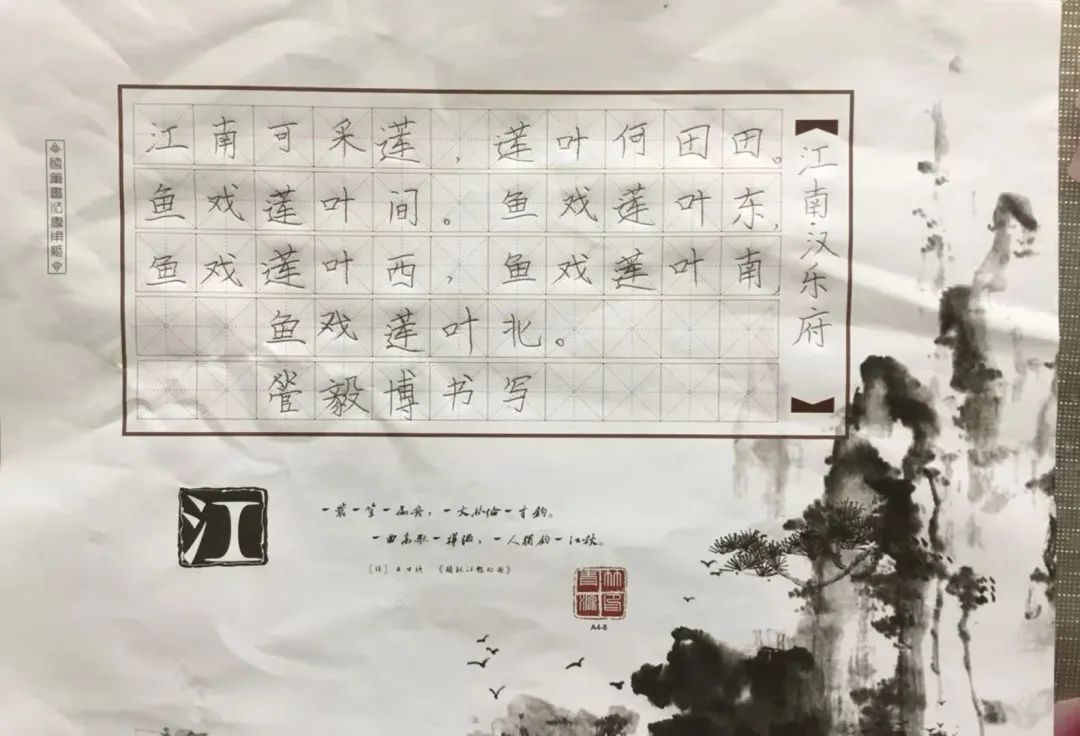 江南可采莲，莲叶何田田。
鱼戏莲叶间。鱼戏莲叶东，
鱼戏莲叶西，鱼戏莲叶南，
鱼戏莲叶北。
管毅博书写
江南汉乐府
硬筆書法專用紙
江
一蓑一笠一扁舟，一丈丝纶一寸钩。
一曲高歌一樽酒，一人独钓一江秋。
[清] 王士祯 《题秋江独钓图》
A4-8